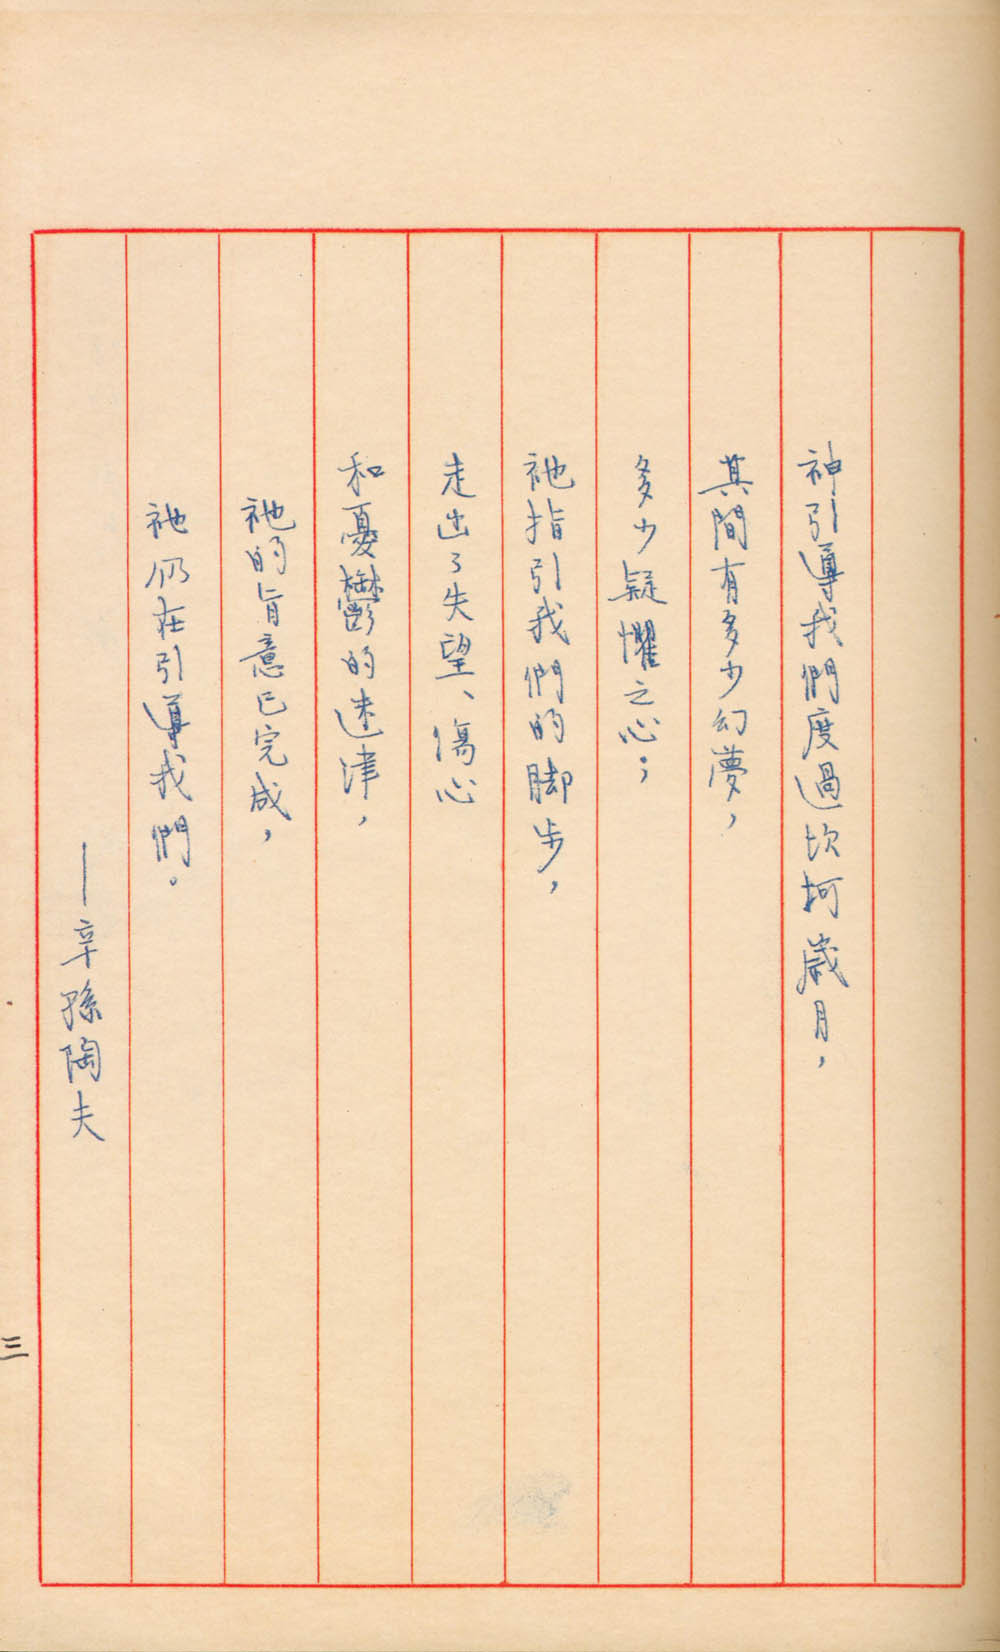 神引導我們度過坎坷歲月，
其間有多少幻夢，
多少疑懼之心；
祂指引我們的脚步，
走出了失望、傷心
和憂鬱的迷津，
祂的旨意已完成，
祂仍在引導我們。
——辛孫陶夫
三